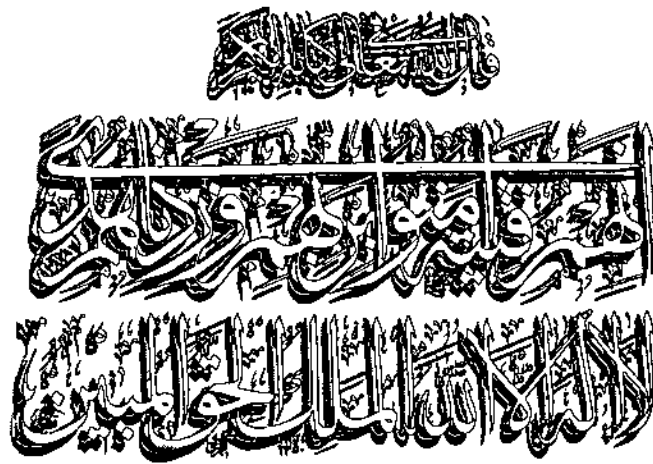 قال الله تعالى في كتابه الكريم
إنهم فتية آمنوا بربهم وزدناهم هدى
لا إله إلا الله الملك الحق المبين